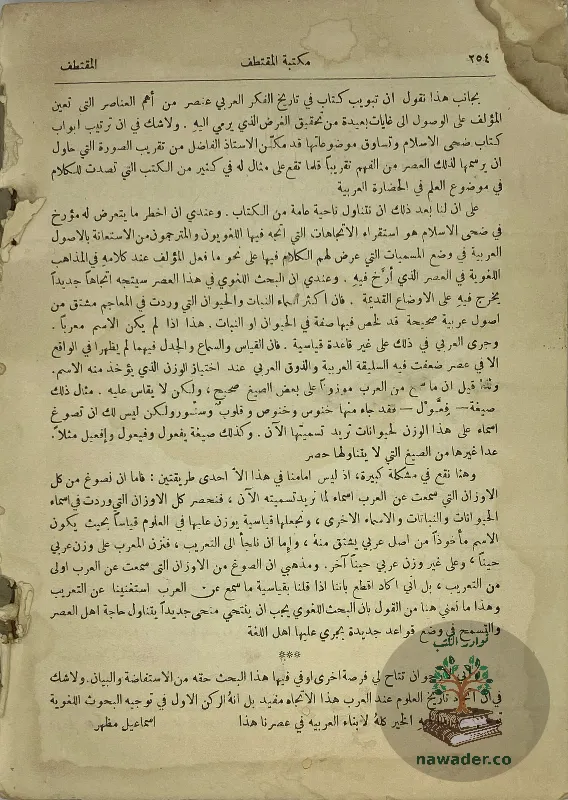 ٢٥٤ مكتبة المقتطف المقتطف
بجانب هذا نقول ان تبويب كتاب في تاريخ الفكر العربي عنصر من أهم العناصر التي تعين
المؤلف على الوصول الى غايات بعيدة من تحقيق الغرض الذي يرمي اليهِ . ولا شك في ان ترتيب ابواب
كتاب ضحى الاسلام وتساوق موضوعاتها قد مكّن الاستاذ الفاضل من تقريب الصورة التي حاول
ان يرسمها لذلك العصر من الفهم تقريباً قلما تقع على مثال له في كثير من الكتب التي تصدت للكلام
في موضوع العلم في الحضارة العربية
على ان لنا بعد ذلك ان نتناول ناحية عامة من الكتاب . وعندي ان اخطر ما يتعرض له مؤرخ
في ضحى الاسلام هو استقراء الاتجاهات التي اتجه فيها اللغويون والمترجمون من الاستعانة بالاصول
العربية في وضع المسميات التي عرض لهم الكلام فيها على نحو ما فعل المؤلف عند كلامهِ في المذاهب
اللغوية في العصر الذي أرَّخ فيهِ . وعندي ان البحث اللغوي في هذا العصر سيتجه اتجاهاً جديداً
يخرج فيهِ على الاوضاع القديمة . فان أكثر اسماء النبات والحيوان التي وردت في المعاجم مشتق من
اصول عربية صحيحة قد لخص فيها صفة في الحيوان او النبات . هذا اذا لم يكن الاسم معرباً .
وجرى العربي في ذلك على غير قاعدة قياسية . فان القياس والسماع والجدل فيهما لم يظهرا في الواقع
الا في عصر ضعفت فيه السليقة العربية والذوق العربي عند اختيار الوزن الذي يؤخذ منه الاسم.
ولهذا قيل ان ما سمع من العرب موزوناً على بعض الصيغ صحيح ، ولكن لا يقاس عليه . مثال ذلك
صيغة — فِعَّوْل — فقد جاء منها خنوس وخنوص و قلوب وسنور ولكن ليس لك ان تصوغ
اسماء على هذا الوزن لحيوانات تريد تسميتها الآن . وكذلك صيغة يفعول وفيعول وإفعيل مثلاً.
عدا غيرها من الصيغ التي لا يتناولها حصر
وهنا نقع في مشكلة كبيرة، اذ ليس امامنا في هذا الاّ احدى طريقتين : فاما ان نصوغ من كل
الاوزان التي سمعت عن العرب اسماء لما نريد تسميته الآن ، فنحصر كل الاوزان التي وردت في اسماء
الحيوانات والنباتات والاسماء الاخرى ، ونجعلها قياسية يوزن عليها في العلوم قياساً بحيث يكون
الاسم مأخوذاً من اصل عربي يشتق منهُ ، وإما ان نلجأ الى التعريب ، فنزن المعرب على وزن عربي
حيناً ، وعلى غير وزن عربي حيناً آخر . ومذهبي ان الصوغ من الاوزان التى سمعت عن العرب اولى
من التعريب ، بل اني اكاد اقطع باننا اذا قلنا بقياسية ما سمع عن العرب استغنينا عن التعريب
وهذا ما نعني هنا من القول بان البحث اللغوي يجب ان ينتحي منحى جديداً يتناول حاجة اهل العصر
والتسمح في وضع قواعد جديدة يجري عليها اهل اللغة
***
ان تتاح لي فرصة اخرى اوفي فيها هذا البحث حقه من الاستفاضة والبيان . ولا شك
في ان تاريخ العلوم عند العرب هذا الاتجاه مفيد بل انهُ الركن الاول في توجيه البحوث اللغوية
الخير كلهُ لابناء العربيه في عصرنا هذا اسماعيل مظهر
نوادر الكتب
nawader.co